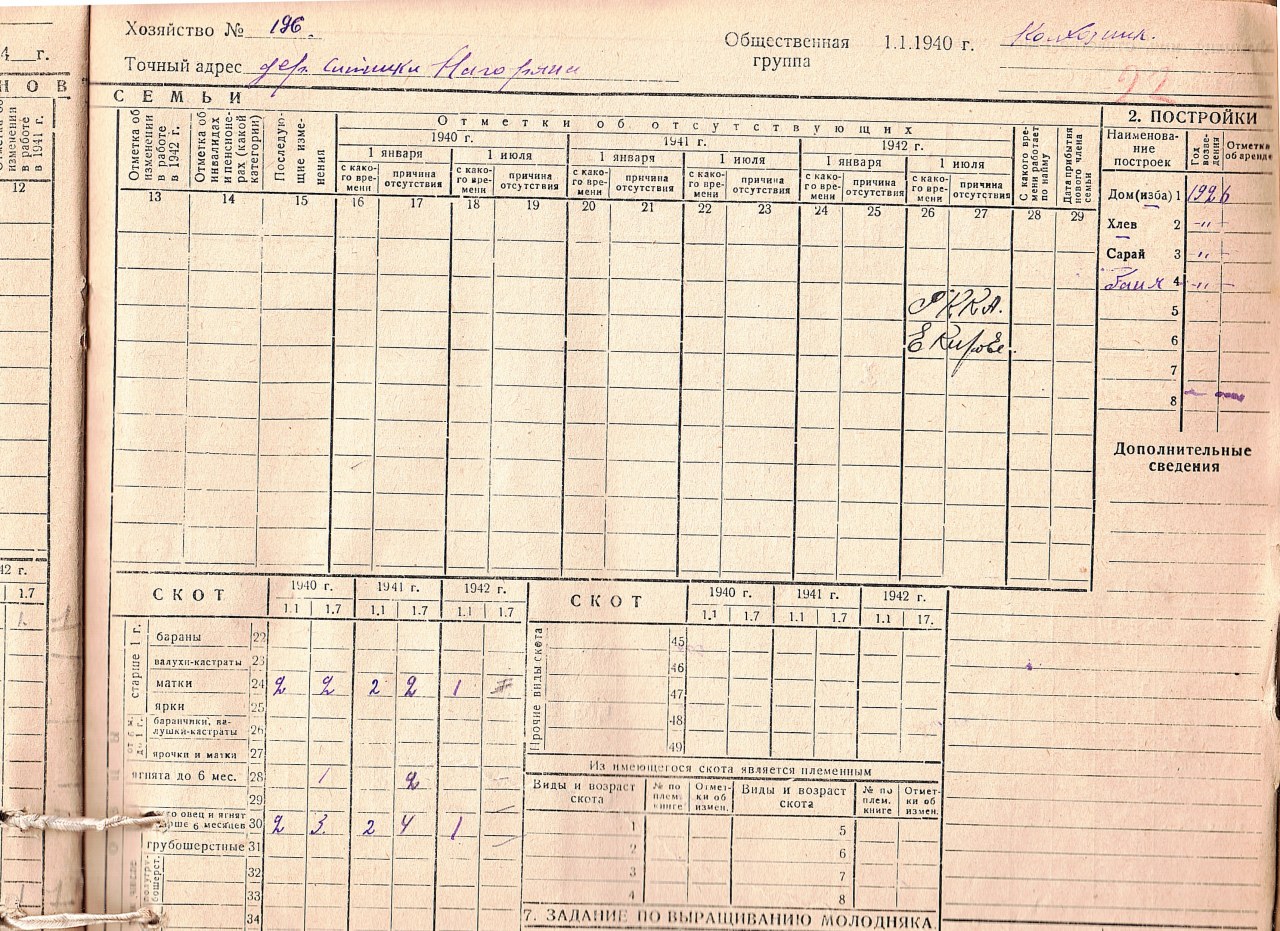 Хозяйство № 196.
Общественная группа 1.1.1940 г. Колхозник.
Точный адрес дер.
92
4 г.
НОВ
СЕМЬИ
изменении в работе в 1941 г.
12
Отметка об изменении в работе в 1942 г.
Отметка об инвалидах и пенсионерах (какой категории)
Последующие изменения
Отметки об отсутствующих
1940 г. 1941 г. 1942 г.
1 января 1 июля 1 января 1 июля 1 января 1 июля
с како-го вре-мени причина отсутствия с како-го вре-мени причина отсутствия с како-го вре-мени причина отсутствия с како-го вре-мени причина отсутствия с како-го вре-мени причина отсутствия с како-го вре-мени причина отсутствия
С какого вре-мени работает по найму
Дата прибытия нового члена семьи
13 14 15 16 17 18 19 20 21 22 23 24 25 26 27 28 29
РККА.
2. ПОСТРОЙКИ
Наименова-ние построек
Год возве-дения
Отметки об аренде
Дом (изба) 1 1926
Хлев 2 -"-
Сарай 3 -"-
баня 4 -"-
5
6
7
8
Дополнительные сведения
42 г.
1.7
СКОТ 1940 г. 1941 г. 1942 г.
1.1 1.7 1.1 1.7 1.1 1.7
старше 1 г.
бараны 22
валухи-кастраты 23
матки 24 2 2 2 2 1
ярки 25
от 6 м. до 1 г.
баранчики, ва-лушки-кастраты 26
ярочки и матки 27
ягнята до 6 мес. 28 1 2
29
овец и ягнят 6 месяцев 30 2 3. 2 4 1
грубошерстные 31
32
33
34
СКОТ 1940 г. 1941 г. 1942 г.
1.1 1.7 1.1 1.7 1.1 17.
Прочие виды скота
45
46
47
48
49
Из имеющегося скота является племенным
Виды и возраст скота № по плем. книге Отмет-ки об измен. Виды и возраст скота № по плем. книге Отмет-ки об измен.
1 5
2 6
3 7
4 8
7. ЗАДАНИЕ ПО ВЫРАЩИВАНИЮ МОЛОДНЯКА.